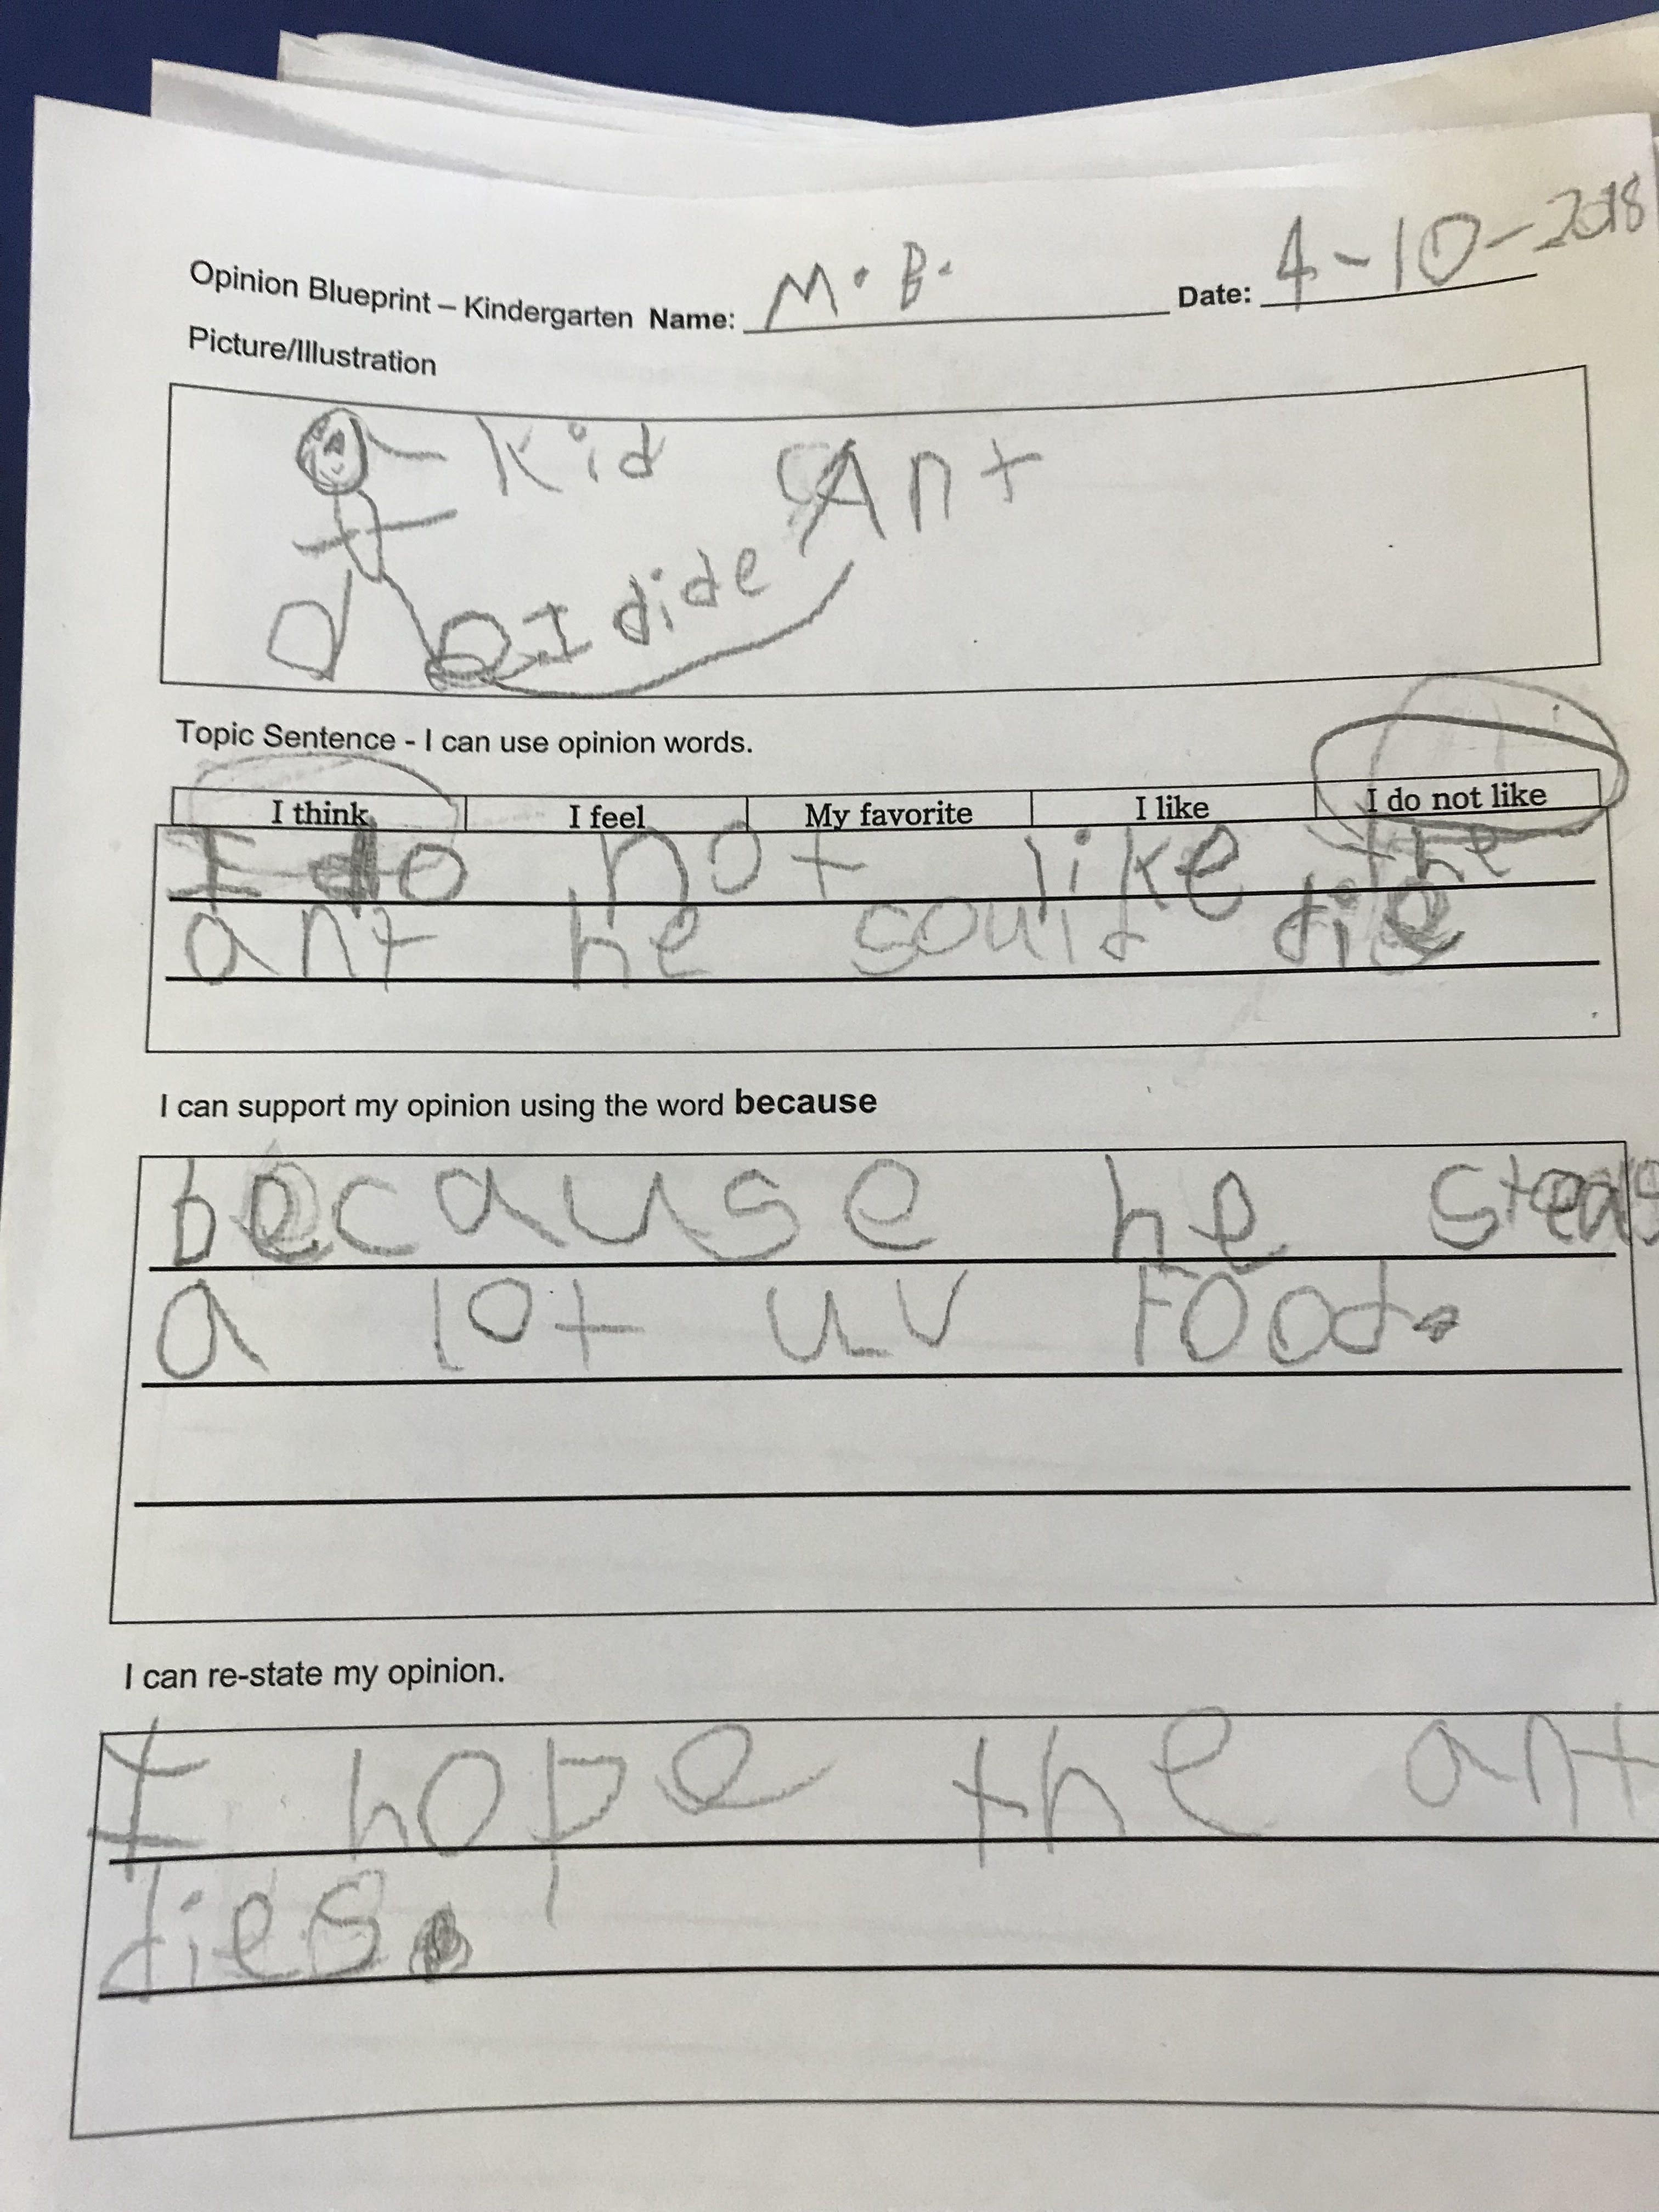 Opinion Blueprint – Kindergarten Name: M. B. Date: 4-10-2018
Picture/Illustration
Kid Ant
I dide
Topic Sentence - I can use opinion words.
I think I feel My favorite I like I do not like
I do not like the
ant he sould die
I can support my opinion using the word because
because he steals
a lot uv Food.
I can re-state my opinion.
I hope the ant
dies.